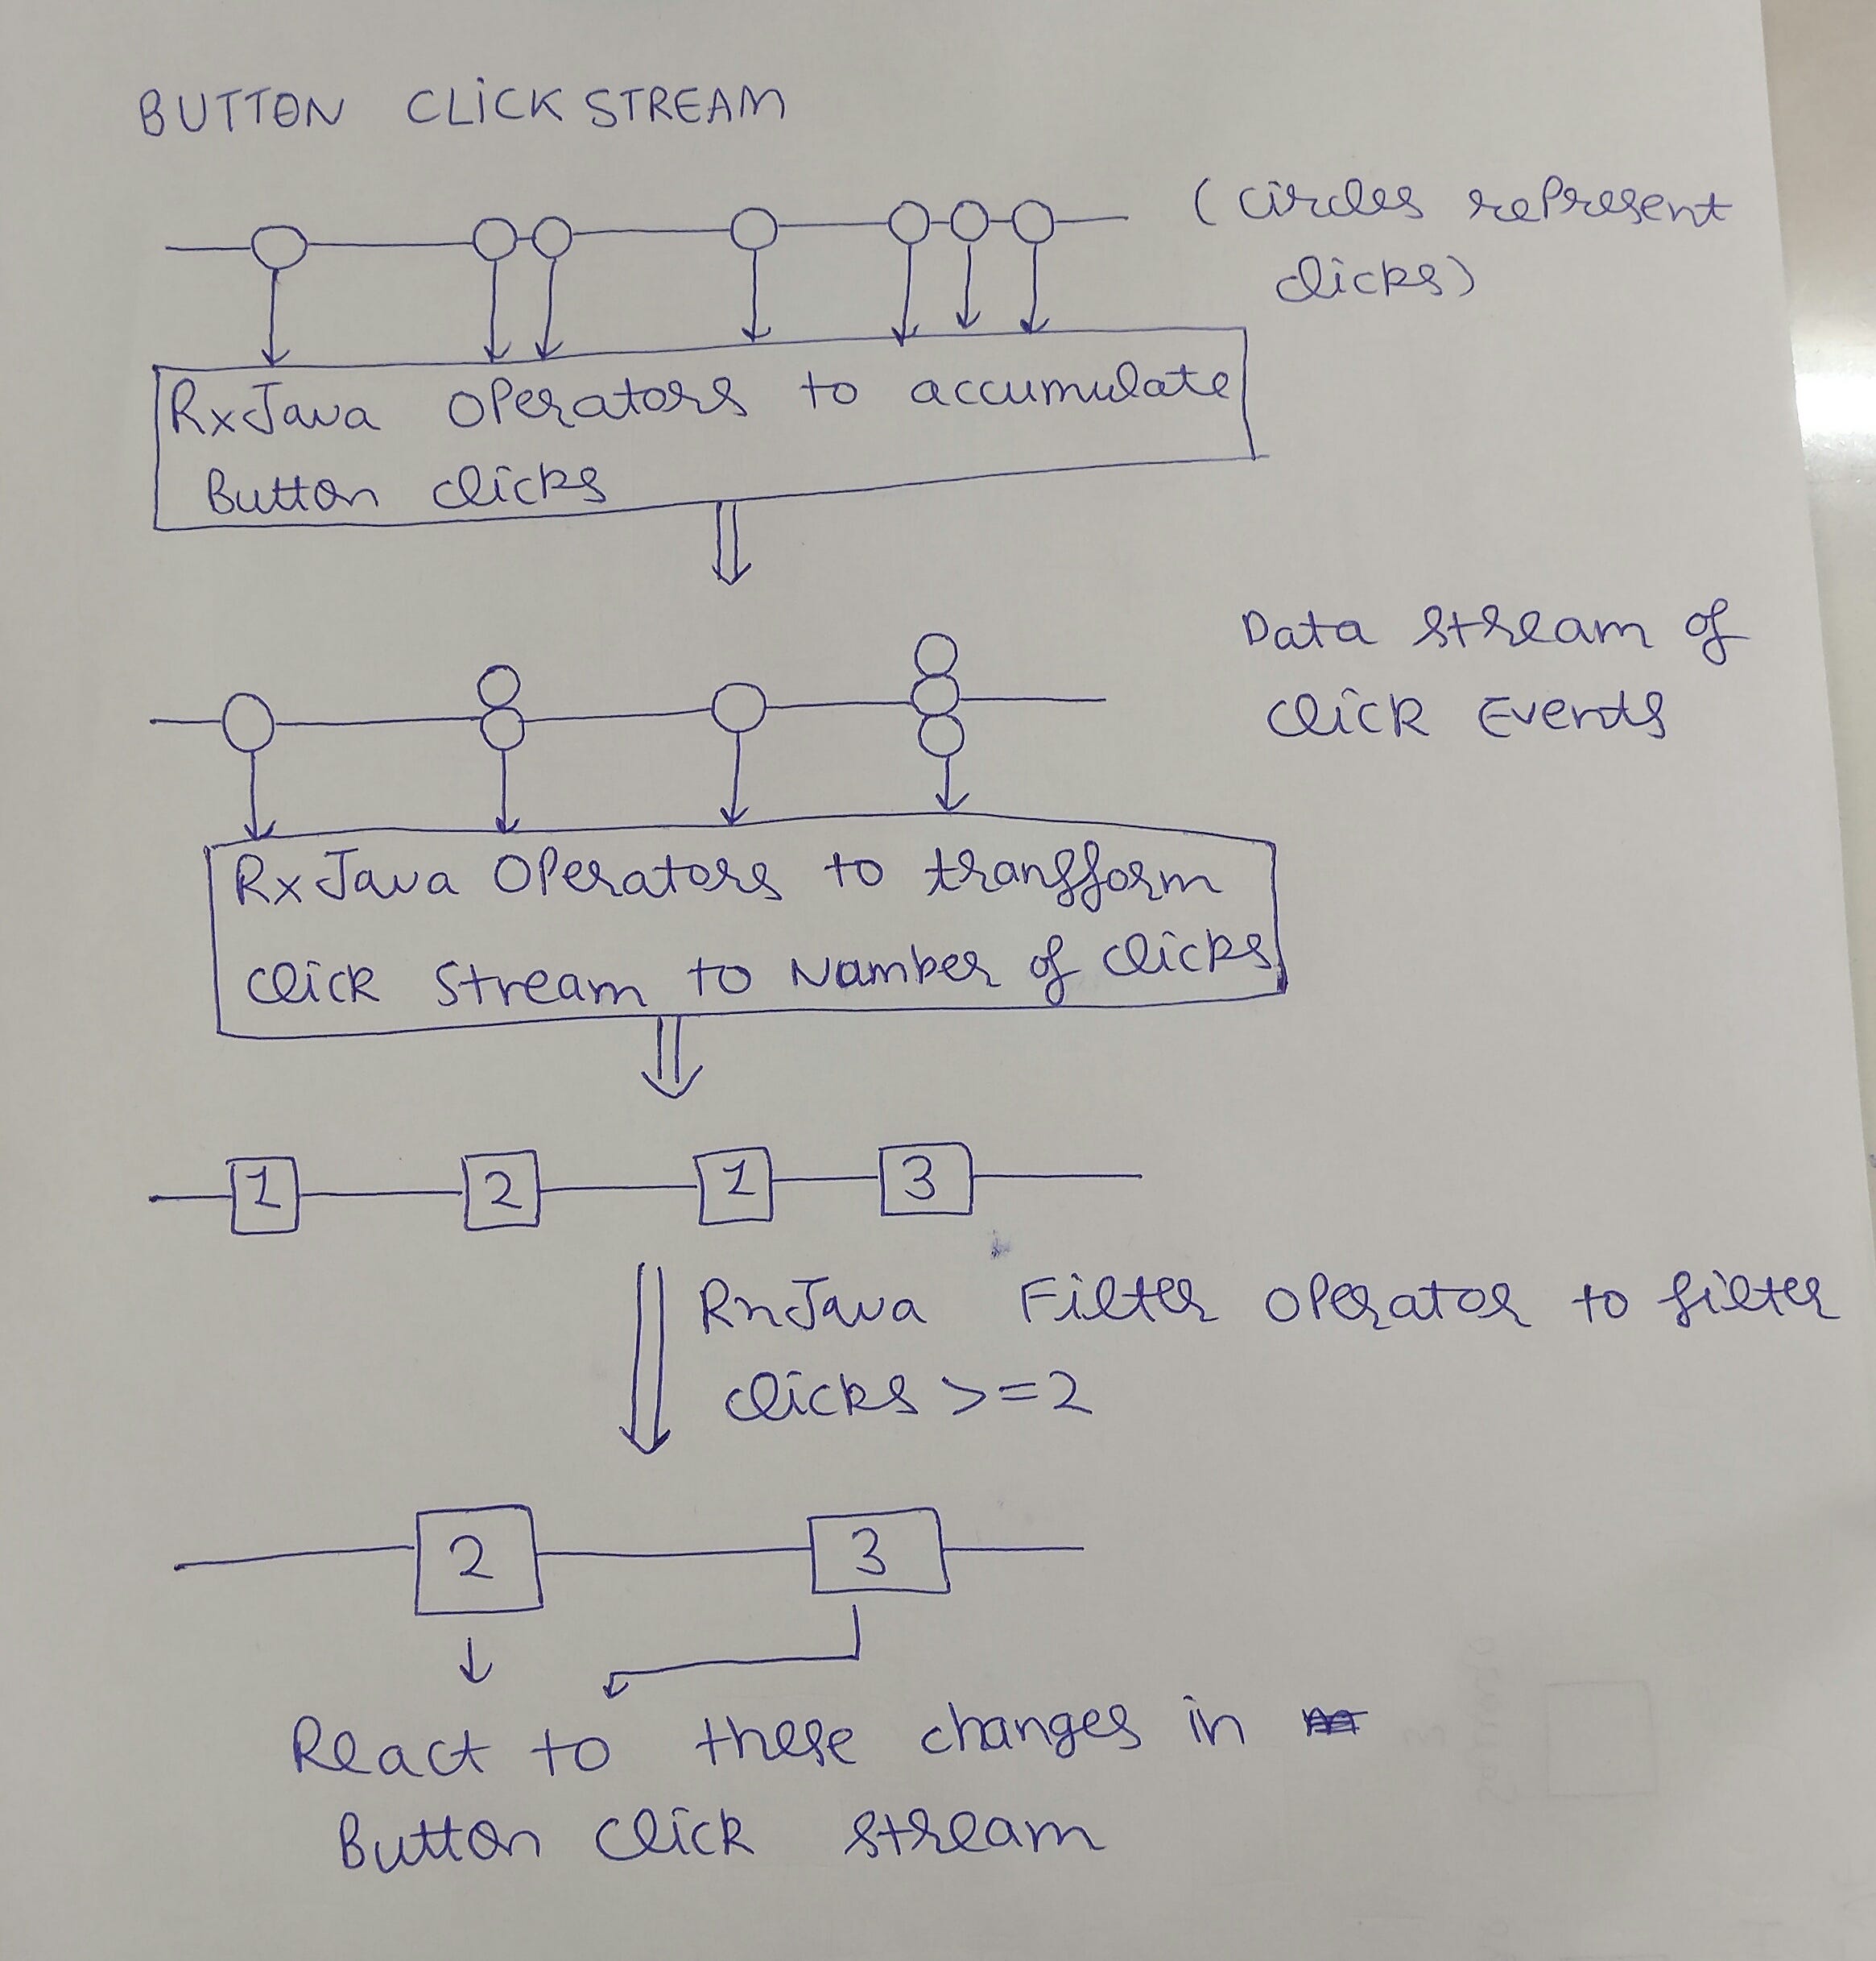 BUTTON CLICK STREAM
(circles represent
clicks)
RxJava Operators to accumulate
Button clicks
Data stream of
click Events
RxJava Operators to transform
click stream to Number of clicks
1 2 1 3
RxJava Filter operator to filter
clicks >=2
2 3
React to these changes in
Button click stream